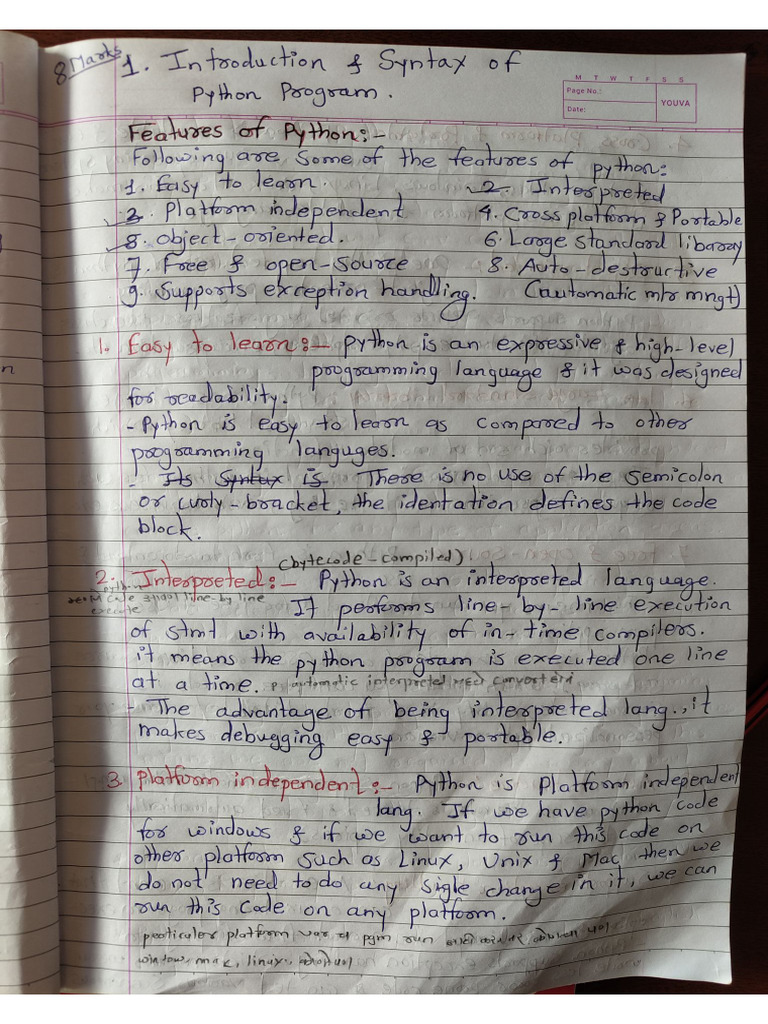 8 Marks
1. Introduction & Syntax of
Python Program.
M T W T F S S
Page No.:
Date:
YOUVA
Features of Python:-
Following are some of the features of python:
1. Easy to learn. 2. Interpreted
3. Platform independent 4. Cross platform & Portable
5. object-oriented. 6. Large standard libaray
7. Free & open-source 8. Auto-destructive
9. Supports exception handling. (automatic mtr mngt)
1. Easy to learn:- Python is an expressive & high-level
programming language & it was designed
for readability.
- Python is easy to learn as compared to other
programming languges.
- Its Syntax is There is no use of the semicolon
or curly-bracket, the identation defines the code
block.
(bytecode-compiled)
2. Interpreted:- Python is an interpreted language.
python
code line by line
execute
It performs line-by-line execution
of stmt with availability of in-time compilers.
it means the python program is executed one line
at a time. automatic interpreted
- The advantage of being interpreted lang., it
makes debugging easy & portable.
3. Platform independent:- Python is Platform independent
lang. If we have python code
for windows & if we want to run this code on
other platform such as Linux, Unix & Mac then we
do not need to do any sigle change in it, we can
run this code on any platform.
peoticuler platform var च pgm run
window, mak, linux,